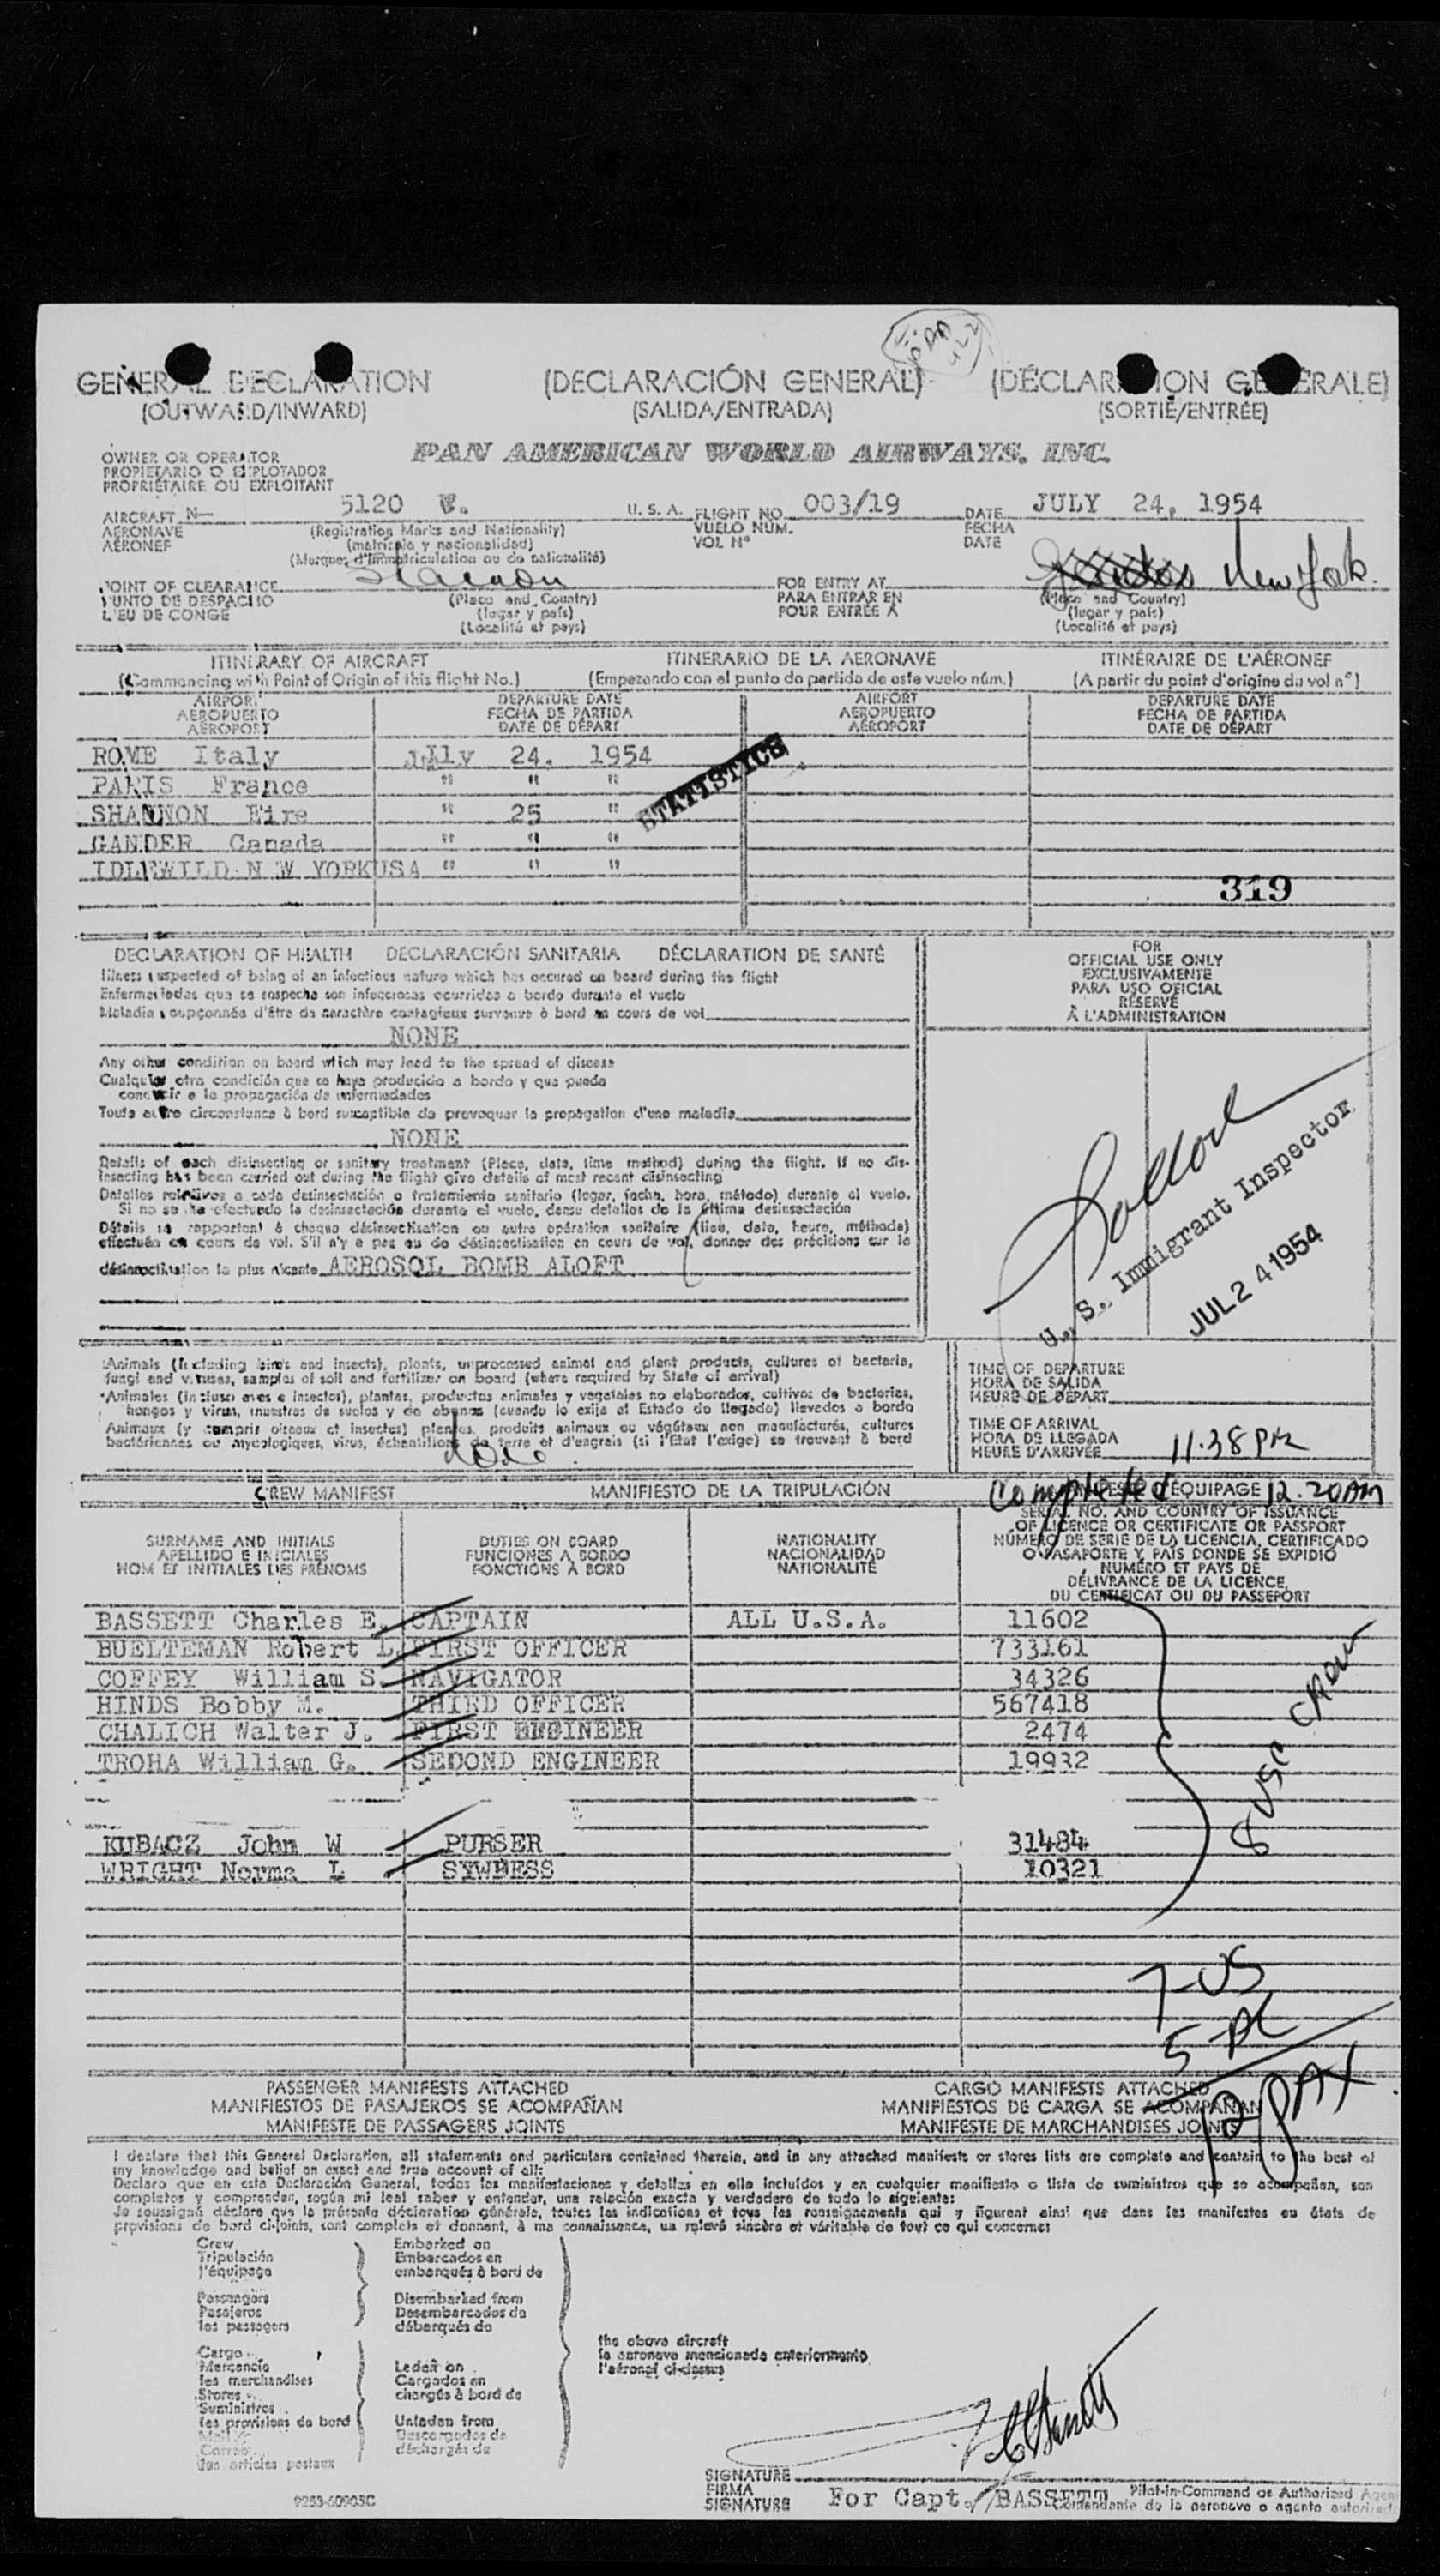 PAA
GENERAL DECLARATION (DECLARACIÓN GENERAL) (DÉCLARATION GÉNÉRALE)
(OUTWARD/INWARD) (SALIDA/ENTRADA) (SORTIE/ENTRÉE)
OWNER OR OPERATOR
PROPIETARIO O EXPLOTADOR
PROPRIÉTAIRE OU EXPLOITANT
PAN AMERICAN WORLD AIRWAYS, INC.
AIRCRAFT N— 5120 V. U. S. A. FLIGHT NO. 003/19 DATE JULY 24, 1954
AERONAVE (Registration Marks and Nationality) VUELO NÚM. FECHA
AÉRONEF (matrícula y nacionalidad) VOL Nº DATE
(Marques d'immatriculation ou de nationalité)
POINT OF CLEARANCE Shannon FOR ENTRY AT New York.
PUNTO DE DESPACHO (Place and Country) PARA ENTRAR EN (Place and Country)
LIEU DE CONGÉ (lugar y país) POUR ENTRÉE À (lugar y país)
(Localité et pays) (Localité et pays)
ITINERARY OF AIRCRAFT ITINERARIO DE LA AERONAVE ITINÉRAIRE DE L'AÉRONEF
(Commencing with Point of Origin of this flight No.) (Empezando con el punto de partida de este vuelo núm.) (A partir du point d'origine du vol nº)
AIRPORT DEPARTURE DATE AIRPORT DEPARTURE DATE
AEROPUERTO FECHA DE PARTIDA AEROPUERTO FECHA DE PARTIDA
AÉROPORT DATE DE DÉPART AÉROPORT DATE DE DÉPART
ROME Italy July 24, 1954
PARIS France " " "
SHANNON Eire " 25 "
GANDER Canada " " "
IDLEWILD N W YORKUSA " " "
STATISTICS
319
DECLARATION OF HEALTH DECLARACIÓN SANITARIA DÉCLARATION DE SANTÉ
Illness suspected of being of an infectious nature which has occured on board during the flight
Enfermedades que se sospecha son infecciosas ocurridas a bordo durante el vuelo
Maladie soupçonnée d'être de caractère contagieux survenue à bord en cours de vol
NONE
Any other condition on board which may lead to the spread of disease
Cualquier otra condición que se haya producido a bordo y que pueda
conducir a la propagación de enfermedades
Toute autre circonstance à bord susceptible de provoquer la propagation d'une maladie
NONE
Details of each disinsecting or sanitary treatment (Place, date, time method) during the flight. If no dis-
insecting has been carried out during the flight give details of most recent disinsecting
Detalles relativos a cada desinsectación o tratamiento sanitario (lugar, fecha, hora, método) durante el vuelo.
Si no se ha efectuado la desinsectación durante el vuelo, dense detalles de la última desinsectación
Détails se rapportant à chaque désinsectisation ou autre opération sanitaire (lieu, date, heure, méthode)
effectuée en cours de vol. S'il n'y a pas eu de désinsectisation en cours de vol, donner des précisions sur la
désinsectisation la plus récente AEROSOL BOMB ALOFT
FOR
OFFICIAL USE ONLY
EXCLUSIVAMENTE
PARA USO OFICIAL
RÉSERVÉ
À L'ADMINISTRATION
U. S. Immigrant Inspector
JUL 24 1954
Animals (including birds and insects), plants, unprocessed animal and plant products, cultures of bacteria,
fungi and viruses, samples of soil and fertilizer on board (where required by State of arrival)
Animales (incluso aves e insectos), plantas, productos animales y vegetales no elaborados, cultivos de bacterias,
hongos y virus, muestras de suelos y de abonos (cuando lo exija el Estado de llegada) llevados a bordo
Animaux (y compris oiseaux et insectes) plantes, produits animaux ou végétaux non manufacturés, cultures
bactériennes ou mycologiques, virus, échantillons de terre et d'engrais (si l'État l'exige) se trouvant à bord
None
TIME OF DEPARTURE
HORA DE SALIDA
HEURE DE DÉPART
TIME OF ARRIVAL
HORA DE LLEGADA
HEURE D'ARRIVÉE 11.38 PM
CREW MANIFEST MANIFIESTO DE LA TRIPULACIÓN ÉQUIPAGE
Completed 12.20AM
SURNAME AND INITIALS
APELLIDO E INICIALES
NOM ET INITIALES DES PRÉNOMS
DUTIES ON BOARD
FUNCIONES A BORDO
FONCTIONS À BORD
NATIONALITY
NACIONALIDAD
NATIONALITÉ
SERIAL NO. AND COUNTRY OF ISSUANCE
OF LICENCE OR CERTIFICATE OR PASSPORT
NÚMERO DE SERIE DE LA LICENCIA, CERTIFICADO
O PASAPORTE Y PAÍS DONDE SE EXPIDIÓ
NUMÉRO ET PAYS DE
DÉLIVRANCE DE LA LICENCE,
DU CERTIFICAT OU DU PASSEPORT
BASSETT Charles E. CAPTAIN ALL U.S.A. 11602
BUELTEMAN Robert L FIRST OFFICER 733161
COFFEY William S. NAVIGATOR 34326
HINDS Bobby M. THIRD OFFICER 567418
CHALICH Walter J. FIRST ENGINEER 2474
TROHA William G. SECOND ENGINEER 19932
KUBACZ John W PURSER 31484
WRIGHT Norma L STWDESS 10321
8 USC CREW
7-US
5-AL
12 PAX
PASSENGER MANIFESTS ATTACHED CARGO MANIFESTS ATTACHED
MANIFIESTOS DE PASAJEROS SE ACOMPAÑAN MANIFIESTOS DE CARGA SE ACOMPAÑAN
MANIFESTE DE PASSAGERS JOINTS MANIFESTE DE MARCHANDISES JOINTS
I declare that this General Declaration, all statements and particulars contained therein, and in any attached manifests or stores lists are complete and contain to the best of
my knowledge and belief an exact and true account of all:
Declaro que en esta Declaración General, todas las manifestaciones y detalles en ella incluidos y en cualquier manifiesto o lista de suministros que se acompañan, son
completos y comprenden, según mi leal saber y entender, una relación exacta y verdadera de todo lo siguiente:
Je soussigné déclare que la présente déclaration générale, toutes les indications et tous les renseignements qui y figurent ainsi que dans les manifestes ou états de
provisions de bord ci-joints, sont complets et donnent, à ma connaissance, un relevé sincère et véritable de tout ce qui concerne:
Crew
Tripulación
l'équipage
Passengers
Pasajeros
les passagers
Cargo
Mercancía
les marchandises
Stores
Suministros
les provisions de bord
Mail
Correo
les articles postaux
Embarked on
Embarcados en
embarqués à bord de
Disembarked from
Desembarcados de
débarqués de
Laden on
Cargados en
chargés à bord de
Unladen from
Descargados de
déchargés de
the above aircraft
la aeronave mencionada anteriormente
l'aéronef ci-dessus
SIGNATURE
FIRMA
SIGNATURE
For Capt. BASSETT
Pilot-in-Command or Authorized Agent
Comandante de la aeronave o agente autorizado